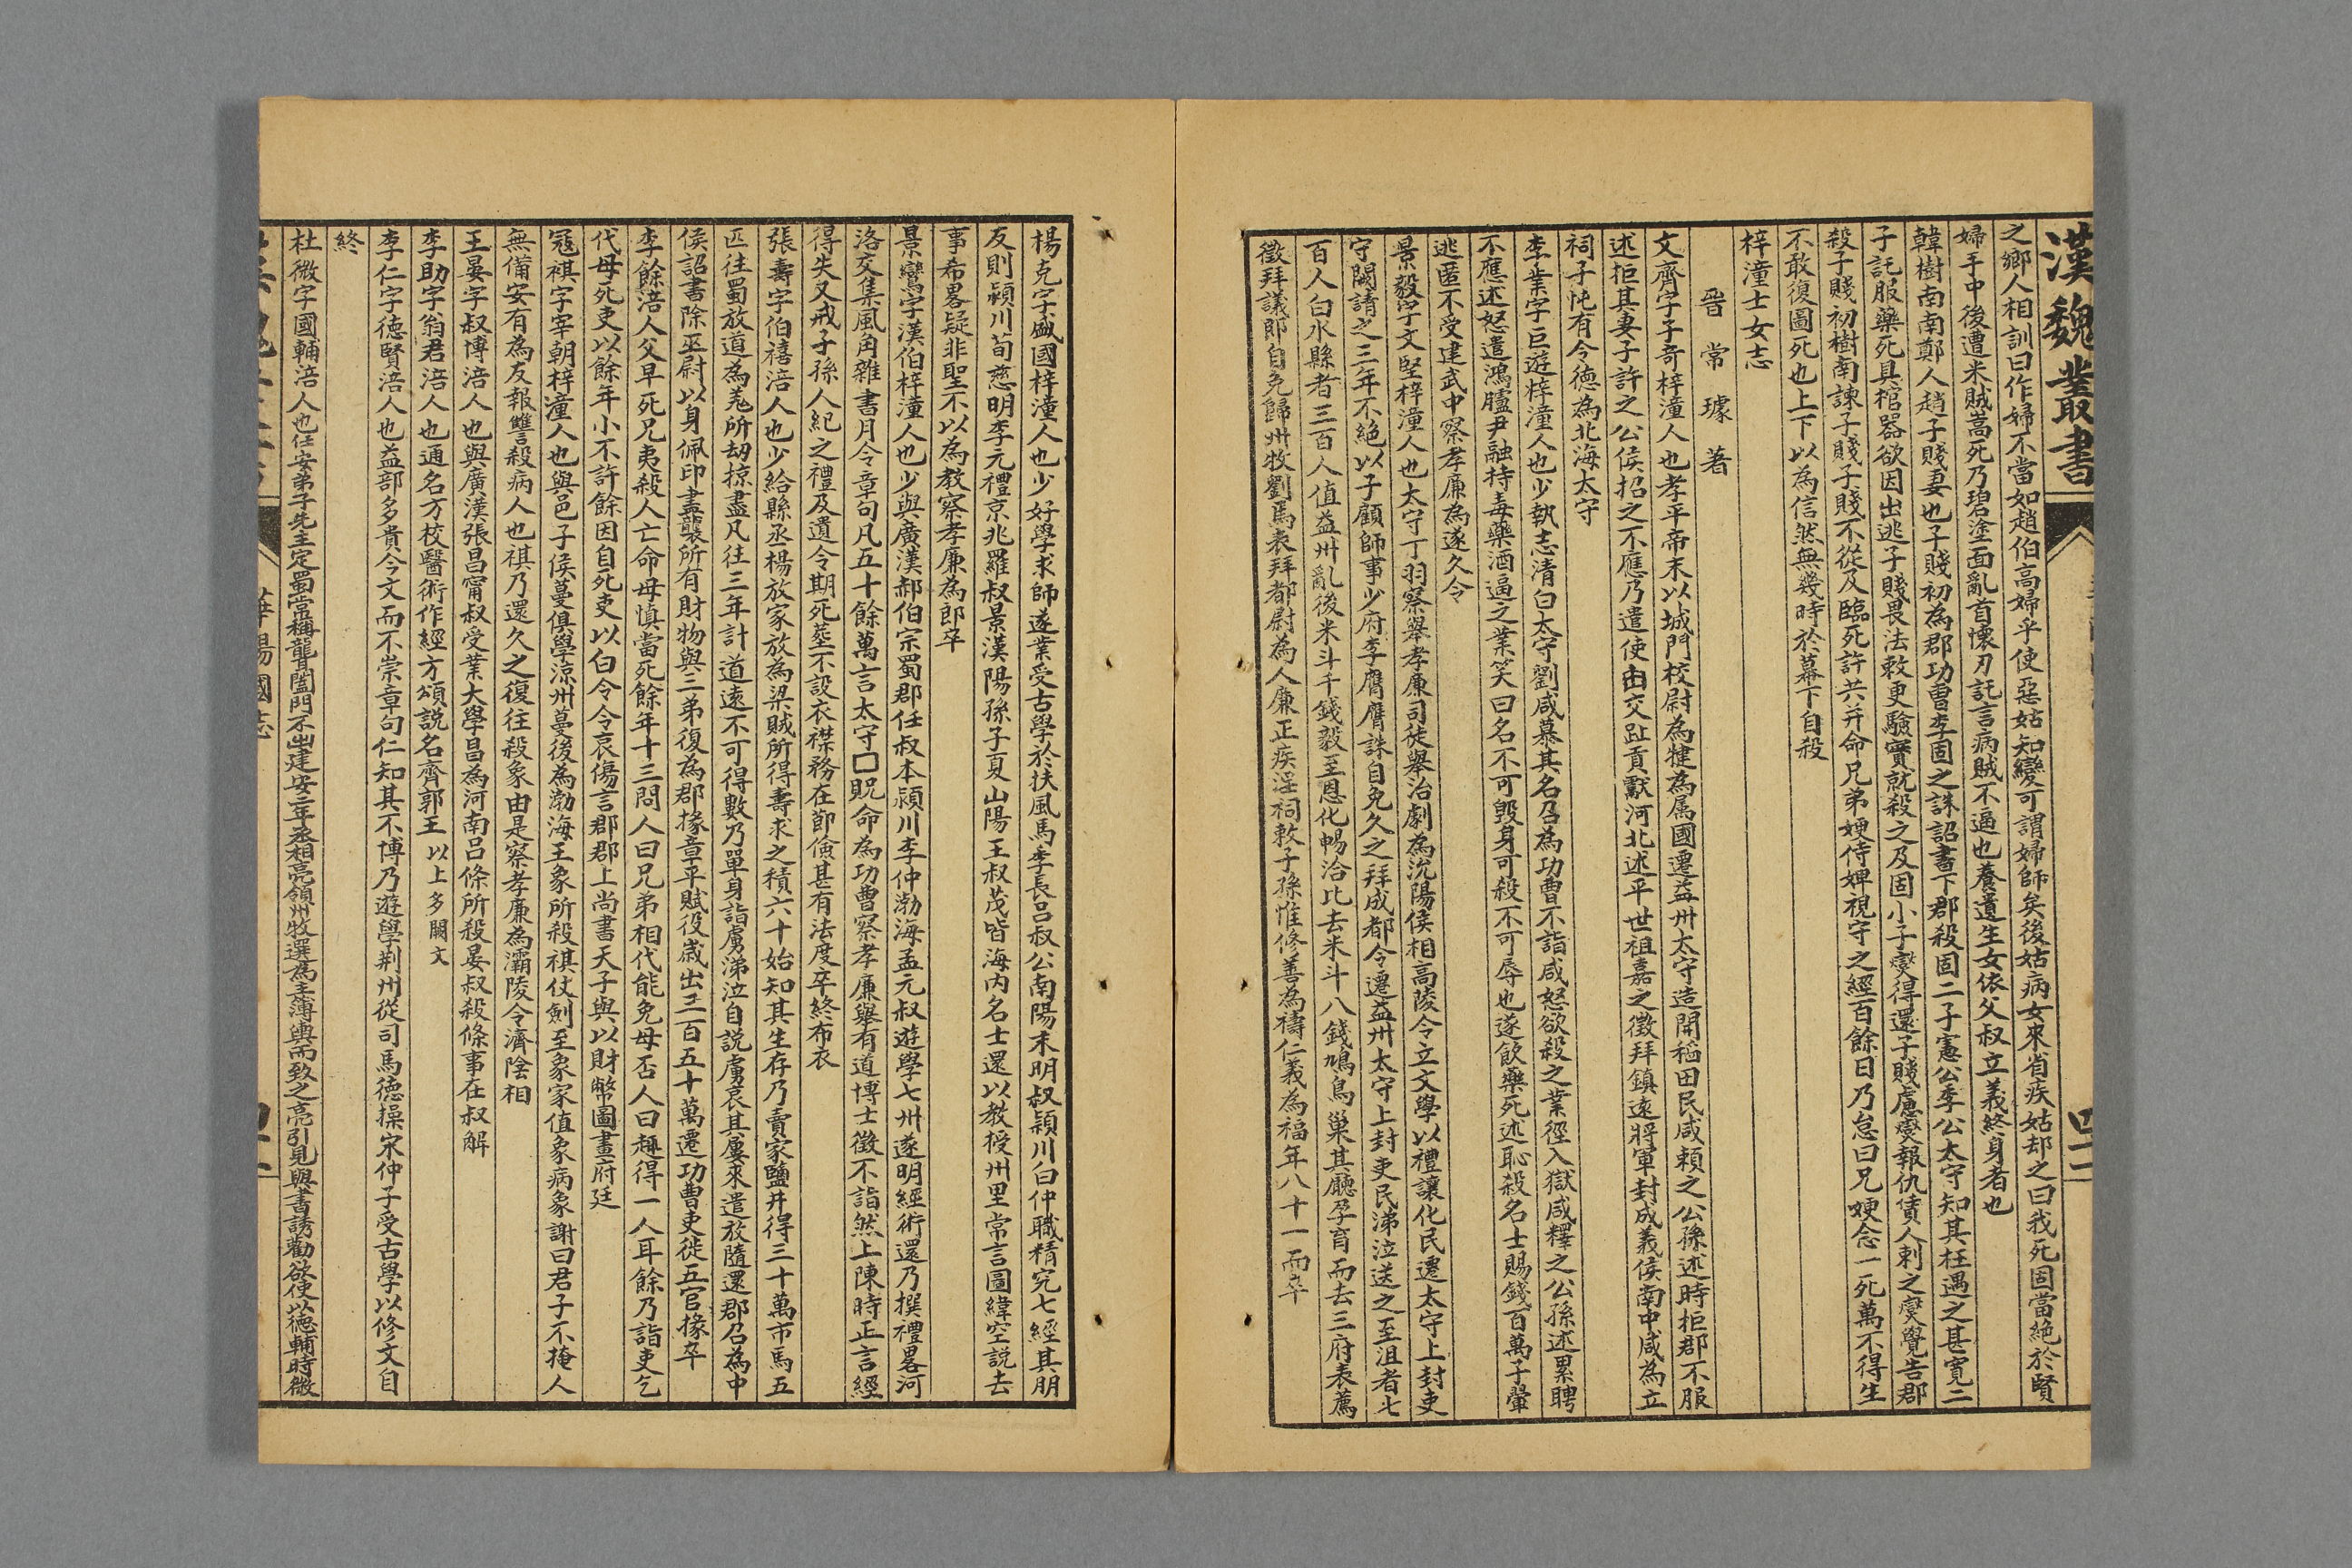 漢魏叢書
之鄉人相訓曰作婦不當如趙伯高婦乎使惡姑知變可謂婦師矣後姑病女來省疾姑却之曰我死固當絕於賢
婦手中後遭米賊嵩死乃碧塗面亂首懷刃託言病賊不逼也養遺生女依父叔立義終身者也
韓樹南南鄭人趙子賤妻也子賤初為郡功曹李固之誅詔書下郡殺固二子憲公季公太守知其枉遇之甚寬二
子託服藥死具棺器欲因出逃子賤畏法敕更驗實就殺之及固小子燮得還子賤慮燮報仇賃人刺之燮覺告郡
殺子賤初樹南諫子賤子賤不從及臨死許共并命兄弟㛐侍婢視守之經百餘日乃怠曰兄㛐念一死萬不得生
不敢復圖死也上下以為信然無幾時於幕下自殺
梓潼士女志
晉常璩著
文齊字子奇梓潼人也孝平帝末以城門校尉為犍為属國遷益州太守造開稻田民咸頼之公孫述時拒郡不服
述拒其妻子許之公侯招之不應乃遣使由交趾貢獻河北述平世祖嘉之徵拜鎮遠將軍封成義侯南中咸為立
祠子忳有令徳為北海太守
李業字巨遊梓潼人也少執志清白太守劉咸慕其名召為功曹不詣咸怒欲殺之業徑入獄咸釋之公孫述累聘
不應述怒遣鴻臚尹融持毒藥酒逼之業笑曰名不可毀身可殺不可辱也遂飲藥死述恥殺名士賜錢百萬子翬
逃匿不受建武中察孝廉為遂久令
景毅字文堅梓潼人也太守丁羽察舉孝廉司徒舉治劇為沈陽侯相高陵令立文學以禮讓化民遷太守上封吏
守闕請之三年不絕以子顧師事少府李膺膺誅自免久之拜成都令遷益州太守上封吏民涕泣送之至沮者七
百人白水縣者三百人值益州亂後米斗千錢毅至恩化暢洽比去米斗八錢鳩鳥巢其廳孕育而去三府表薦
徵拜議郎自免歸州牧劉焉表拜都尉為人廉正疾淫祠敕子孫惟修善為禱仁義為福年八十一而卒
楊充字盛國梓潼人也少好學求師遂業受古學於扶風馬季長呂叔公南陽末明叔潁川白仲職精究七經其朋
友則潁川荀慈明李元禮京兆羅叔景漢陽孫子夏山陽王叔茂皆海內名士還以教授州里常言圖緯空說去
事希畧疑非聖不以為教察孝廉為郎卒
景鸞字漢伯梓潼人也少與廣漢郝伯宗蜀郡任叔本潁川李仲渤海孟元叔遊學七州遂明經術還乃撰禮畧河
洛交集風角雜書月令章句凡五十餘萬言太守□貺命為功曹察孝廉舉有道博士徵不詣然上陳時正言經
得失又戒子孫人紀之禮及遺令期死塟不設衣襟務在節儉甚有法度卒終布衣
張壽字伯禧涪人也少給縣丞楊放家放為梁賊所得壽求之積六十始知其生存乃賣家鹽井得三十萬市馬五
匹往蜀放道為羌所刧掠盡凡往三年計道遠不可得數乃單身詣虜涕泣自説虜哀其屢來遣放隨還郡召為中
侯詔書除巫尉以身佩印盡襲所有財物與二弟復為郡掾章平賦役嵗出三百五十萬遷功曹吏徙五官掾卒
李餘涪人父早死兄夷殺人亡命母慎當死餘年十三問人曰兄弟相代能免母否人曰趣得一人耳餘乃詣吏乞
代母死吏以餘年小不許餘因自死吏以白令令哀傷言郡郡上尚書天子與以財幣圖畫府廷
冦祺字宰朝梓潼人也與邑子侯蔓俱學涼州蔓後為渤海王象所殺祺仗劍至象家值象病象謝曰君子不掩人
無備安有為友報讐殺病人也祺乃還久之復往殺象由是察孝廉為灞陵令濟陰相
王晏字叔博涪人也與廣漢張昌甯叔受業大學昌為河南呂條所殺晏叔殺條事在叔解
李助字翁君涪人也通名方校醫術作經方頌説名齊郭王以上多闕文
李仁字徳賢涪人也益部多貴今文而不崇章句仁知其不博乃遊學荆州從司馬徳操宋仲子受古學以修文自
終
杜微字國輔涪人也任安弟子先主定蜀常稱聾闔門不出建安二年丞相亮領州牧選為主簿輿而致之亮引見與書誘勸欲使以徳輔時微
華陽國志